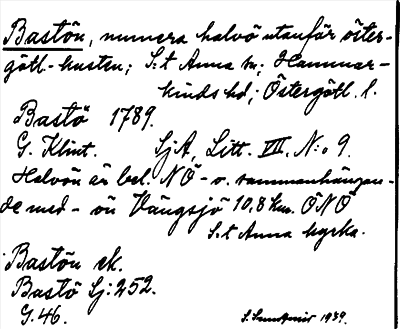 Bastön, numera halvö utanför öster-
götl-kusten; S:t Anna sn; Hammar-
kinds hd; Östergötl. l.
Bastö 1789.
G. Klint. SjA, Litt. VII, N:o 9.
Halvön är bel. NÖ- o. sammanhängan-
de med - ön Vängsjö 10,8 km. ÖNÖ
S:t Anna kyrka.
Bastön ek.
Bastö Sj:252.
G.46. 1939.